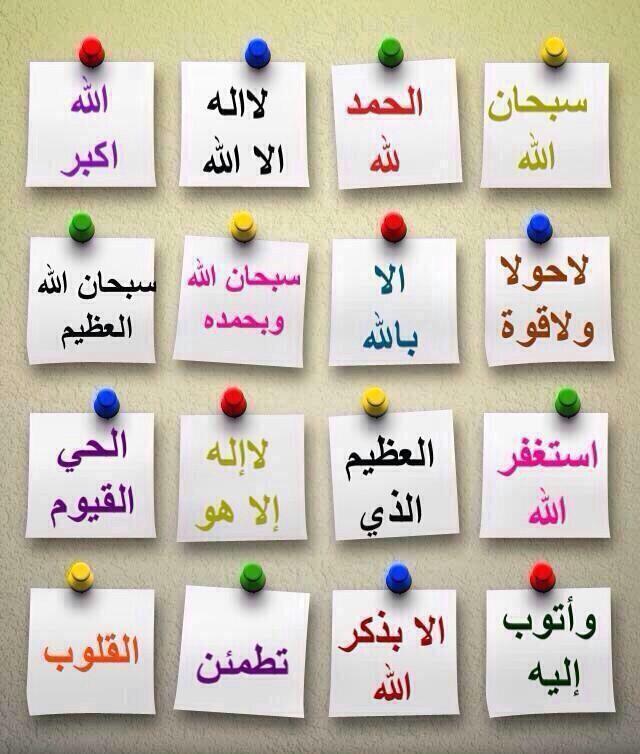 سبحان
الله
الحمد
لله
لااله
الا الله
الله
اكبر
لاحولا
ولاقوة
الا
بالله
سبحان الله
وبحمده
سبحان الله
العظيم
استغفر
الله
العظيم
الذي
لاإله
إلا هو
الحي
القيوم
وأتوب
إليه
الا بذكر
الله
تطمئن
القلوب